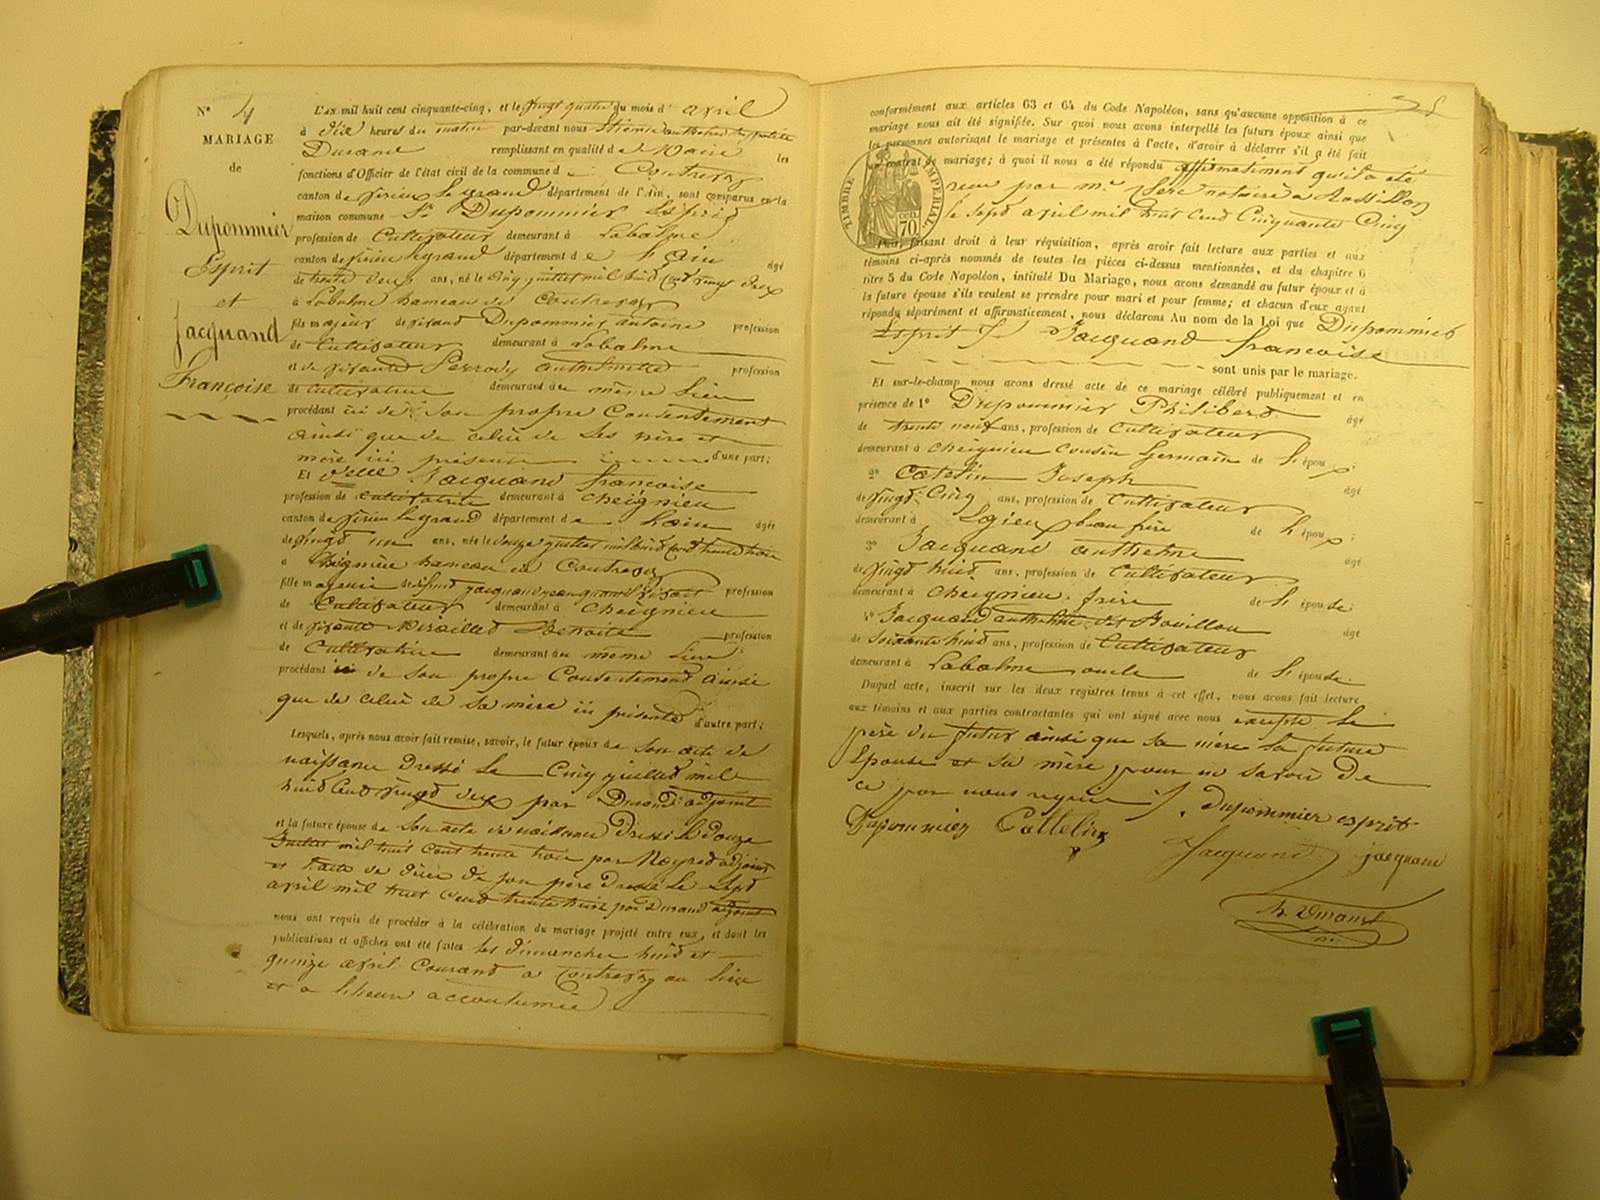 N° 4
MARIAGE
de
Dupommier
Esprit
et
Jacquand
Françoise
L'an mil huit cent cinquante-cinq, et le vingt quatre du mois d' avril
à dix heures du matin par-devant nous anthelme hypolite
Durand remplissant en qualité de Maire les
fonctions d'Officier de l'état civil de la commune de Contrevoz
canton de Virieu le grand département de l'Ain, sont comparus en la
maison commune Sr Dupommier Esprit
profession de Cultivateur demeurant à Labalme
canton de virieu legrand département de l'ain âgé
de trente deux ans, né le Cinq juillet mil huit Cent vingt deux
à Labalme hameau de Contrevoz
fils majeur de vivant Dupommier antoine profession
de Cultivateur demeurant à Labalme
et de vivante Perrody anthelmette profession
de cultivatrice demeurant au même lieu
procédant ici de son propre Consentement
ainsi que de celui de ses père et
mère ici présents d'une part;
Et Delle Jacquand francoise
profession de cultivatrice demeurant à Cheignieu
canton de virieu le grand département de Lain âgée
de vingt un ans, née le douze juillet mil huit Cent trente trois
à Cheignieu hameau de Contrevoz
fille majeure de défunt jacquand profession
de Cultivateur demeurant à Cheignieu
et de vivante Miraillet Benoite profession
de Cultivatrice demeurant au même lieu
procédant ici de son propre Consentement ainsi
que de celui de sa mère ici présente d'autre part;
Lesquels, après nous avoir fait remise, savoir, le futur époux de son acte de
naissance Dressé le Cinq juillet mil
huit Cent vingt deux par Durand adjoint
et la future épouse de son acte de naissance Dressé le Douze
Juillet mil huit Cent trente trois par Neyret adjoint
et l'acte de décès de son père Dressé le Sept
avril mil huit Cent trente huit par Durand adjoint
nous ont requis de procéder à la célébration du mariage projeté entre eux, et dont les
publications et affiches ont été faites les dimanches huit et
quinze avril Courant a Contrevoz au lieu
et a l'heure accoutumée
conformément aux articles 63 et 64 du Code Napoléon, sans qu'aucune opposition à ce
mariage nous ait été signifiée. Sur quoi nous avons interpellé les futurs époux ainsi que
les personnes autorisant le mariage et présentes à l'acte, d'avoir à déclarer s'il a été fait
un contrat de mariage; à quoi il nous a été répondu affirmativement qu'il a été
reçu par me notaire a Rossillon
le sept avril mil huit cent Cinquante Cinq
TIMBRE IMPERIAL
70 cen.
Puis, faisant droit à leur réquisition, après avoir fait lecture aux parties et aux
témoins ci-après nommés de toutes les pièces ci-dessus mentionnées, et du chapitre 6
titre 5 du Code Napoléon, intitulé Du Mariage, nous avons demandé au futur époux et à
la future épouse s'ils veulent se prendre pour mari et pour femme; et chacun d'eux ayant
répondu séparément et affirmativement, nous déclarons Au nom de la Loi que Dupommier
Esprit & Jacquand francoise
sont unis par le mariage.
Et sur-le-champ nous avons dressé acte de ce mariage célébré publiquement et en
présence de 1° Dupommier Philibert âgé
de trente neuf ans, profession de Cultivateur
demeurant à cheignieu cousin Germain de l'époux;
2° Catelin Joseph âgé
de vingt Cinq ans, profession de Cultivateur
demeurant à beau frère de l'époux;
3° Jacquand anthelme âgé
de vingt huit ans, profession de Cultivateur
demeurant à Cheignieu frère de l'épouse
4° Jacquand anthelme dit Bouillon âgé
de soixante huit ans, profession de Cultivateur
demeurant à Labalme oncle de l'épouse
Duquel acte, inscrit sur les deux registres tenus à cet effet, nous avons fait lecture
aux témoins et aux parties contractantes qui ont signé avec nous excepté le
père du futur ainsi que sa mère la future
Epouse et sa mère pour ne savoir De
ce par nous requis. dupommier esprit
Dupommier Cattelin
Jacquand jacquand
h. Durand